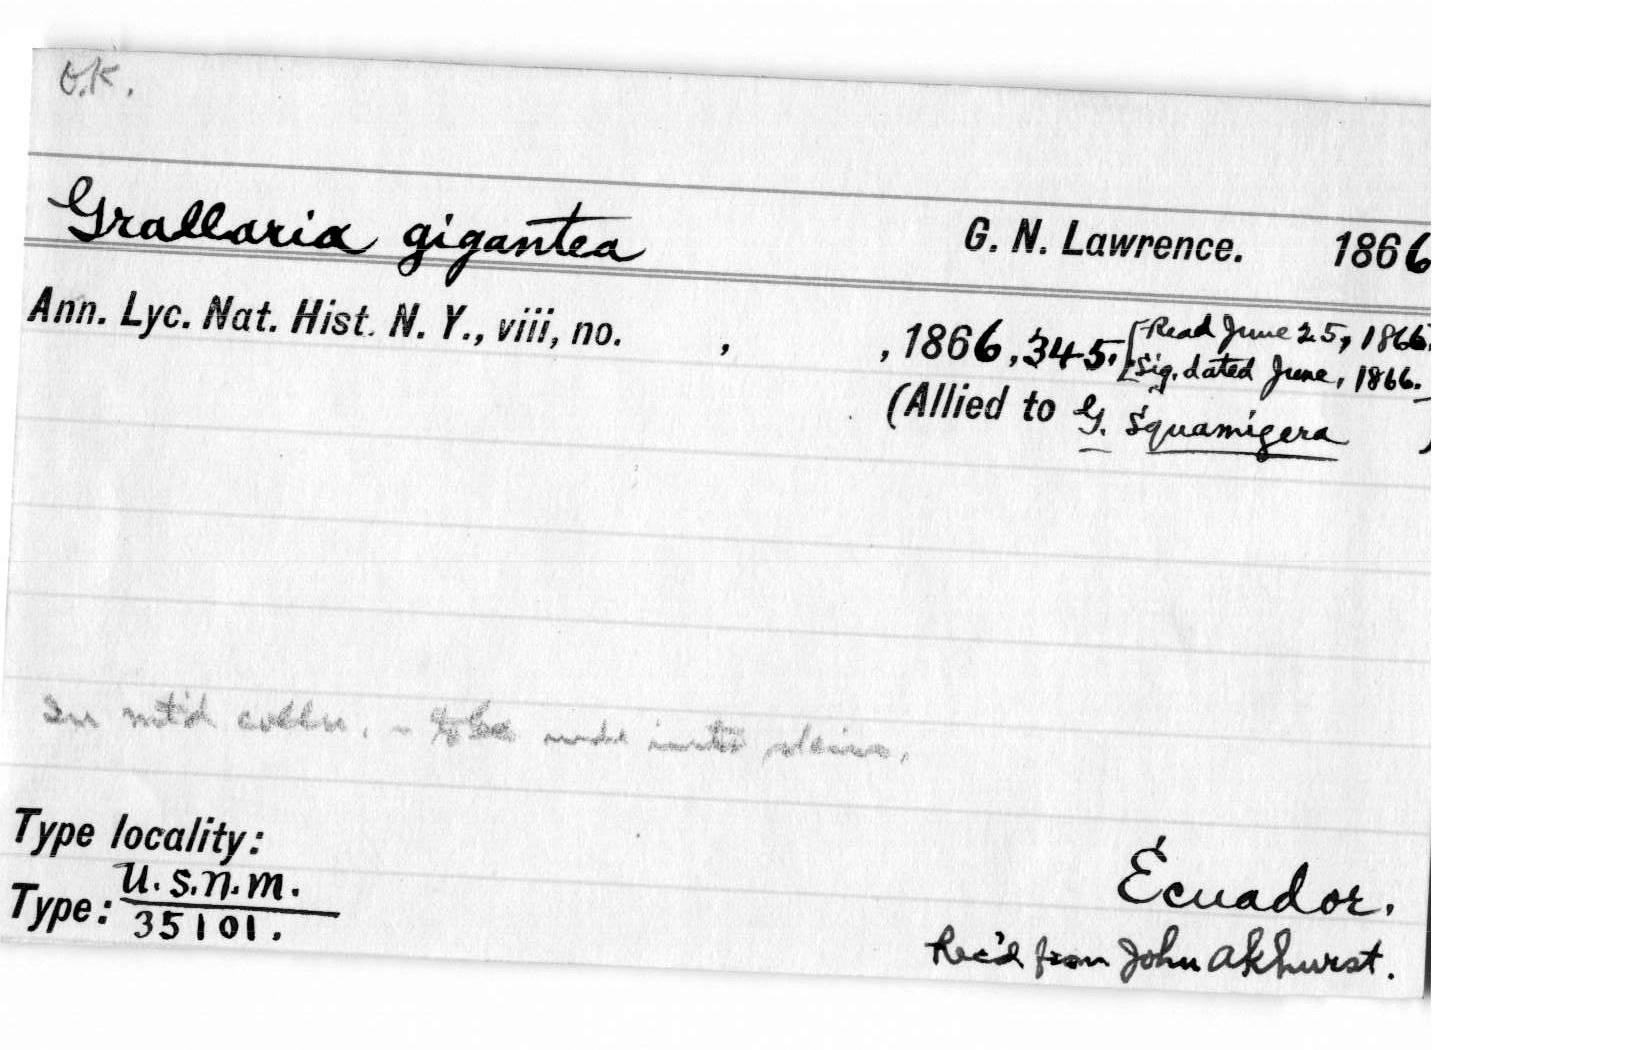 O.K.
Grallaria gigantea G. N. Lawrence. 1866
Ann. Lyc. Nat. Hist. N. Y., viii, no. , , 1866, 345. [Read June 25, 1866.
Sig. dated June, 1866.
(Allied to G. squamigera )
In mt'd colln. - To be made into skins.
Type locality:
Ecuador.
Type: U.S.N.M.
35101.
Rec'd from John Akhurst.